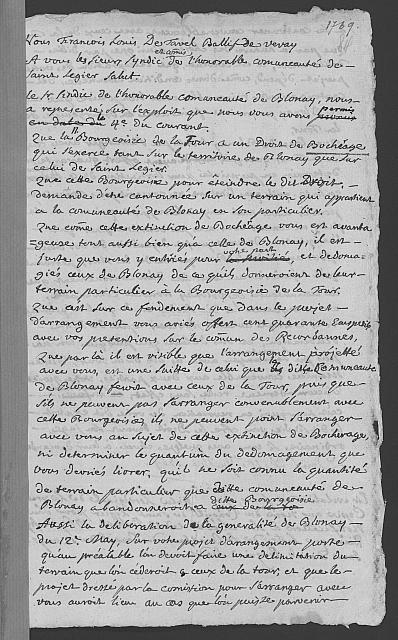 1739.
Nous François Louis De Tavel Ballif de vevay
et amis
A vous les Sieurs Syndic de l'honorable comuneauté de
Saint Legier Salut.
le Sr Sindic de l'honorable comuneauté de Blonay, nous
a representé sur l'exploit que nous vous avons permis
en date du le 4e du courant.
Que la Bourgeoisie de la Tour a un Droit de Bocheage
qui s'exerce tant sur le territoire de Blonay que sur
celui de Saint Legier.
Que cette Bourgeoisie pour éteindre le dit Droit,
demande d'etre cantonnée sur un terrain qui appartient
a la comuneauté de Blonay en son particulier.
Que come cette extinction de Bocheage vous est avanta
geuse tout aussi bien qu'a celle de Blonay, il est
juste que vous y entriés pour part, et dedoma-
giés ceux de Blonay de ce qu'ils donneroient de leur
terrain particulier à la Bourgeoisie de la Tour.
Que c'est sur ce fondement que dans le projet
d'arangement vous aviés offert cent quarante
avec vos pretentions sur le comun des
Que par là il est visible que l'arrangement projetté
avec vous, est une suitte de celui que la dite Comuneauté
de Blonay feroit avec ceux de la Tour, puis que
s'ils ne peuvent pas s'arranger convenablement avec
cette Bourgeoisie, ils ne peuvent point s'arranger
avec vous au sujet de cette extinction de Bocherage,
ni determiner le quantum du dédomagement que
vous devriés livrer, qu'il ne soit connu la quantité
de terrain particulier que ditte comuneauté de
Blonay abandonneroit a ditte Bourgeoisie
Aussi la deliberation de la generalité de Blonay
du 12e May, sur votre projet d'arangement porte
qu'au préalable l'on devoit faire une delimitation du
terrain que l'on céderoit à ceux de la tour, et que le
projet dressé par la comission pour s'arranger avec
vous auroit lieu au cas que l'on puisse parvenir